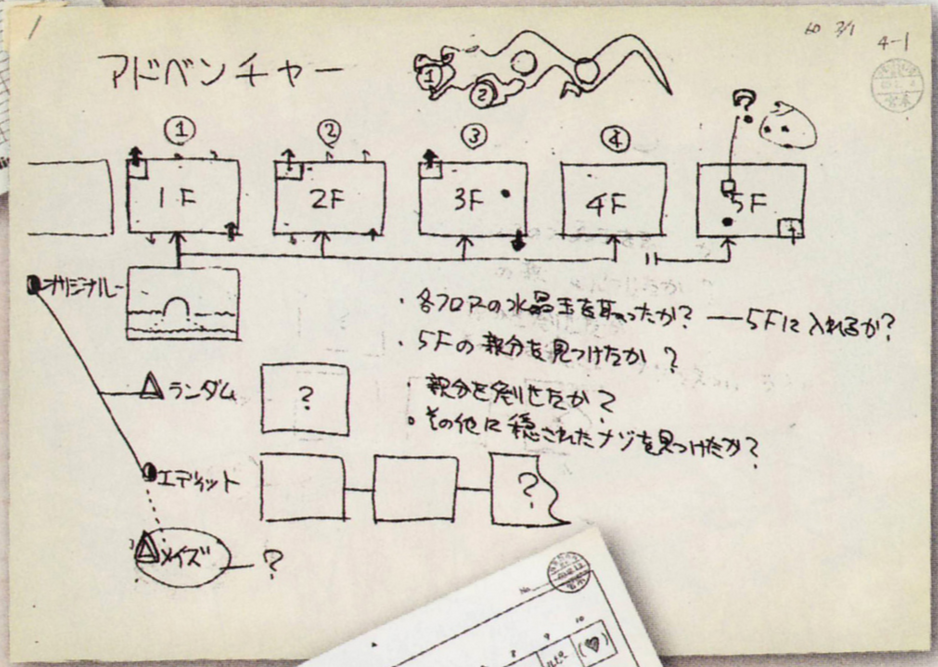 1
60 2/1
4-1
アドベンチャー
① ②
① ② ③ ④
?
1F 2F 3F 4F 5F
オリジナル
・各フロアの水晶玉を取ったか? ― 5Fに入れるか?
・5Fの親分を見つけたか?
親分を倒せたか?
・その他に隠されたナゾを見つけたか?
ランダム
?
エディット
?
メイズ ― ?
No.
8 9 10
ルピー (♥)